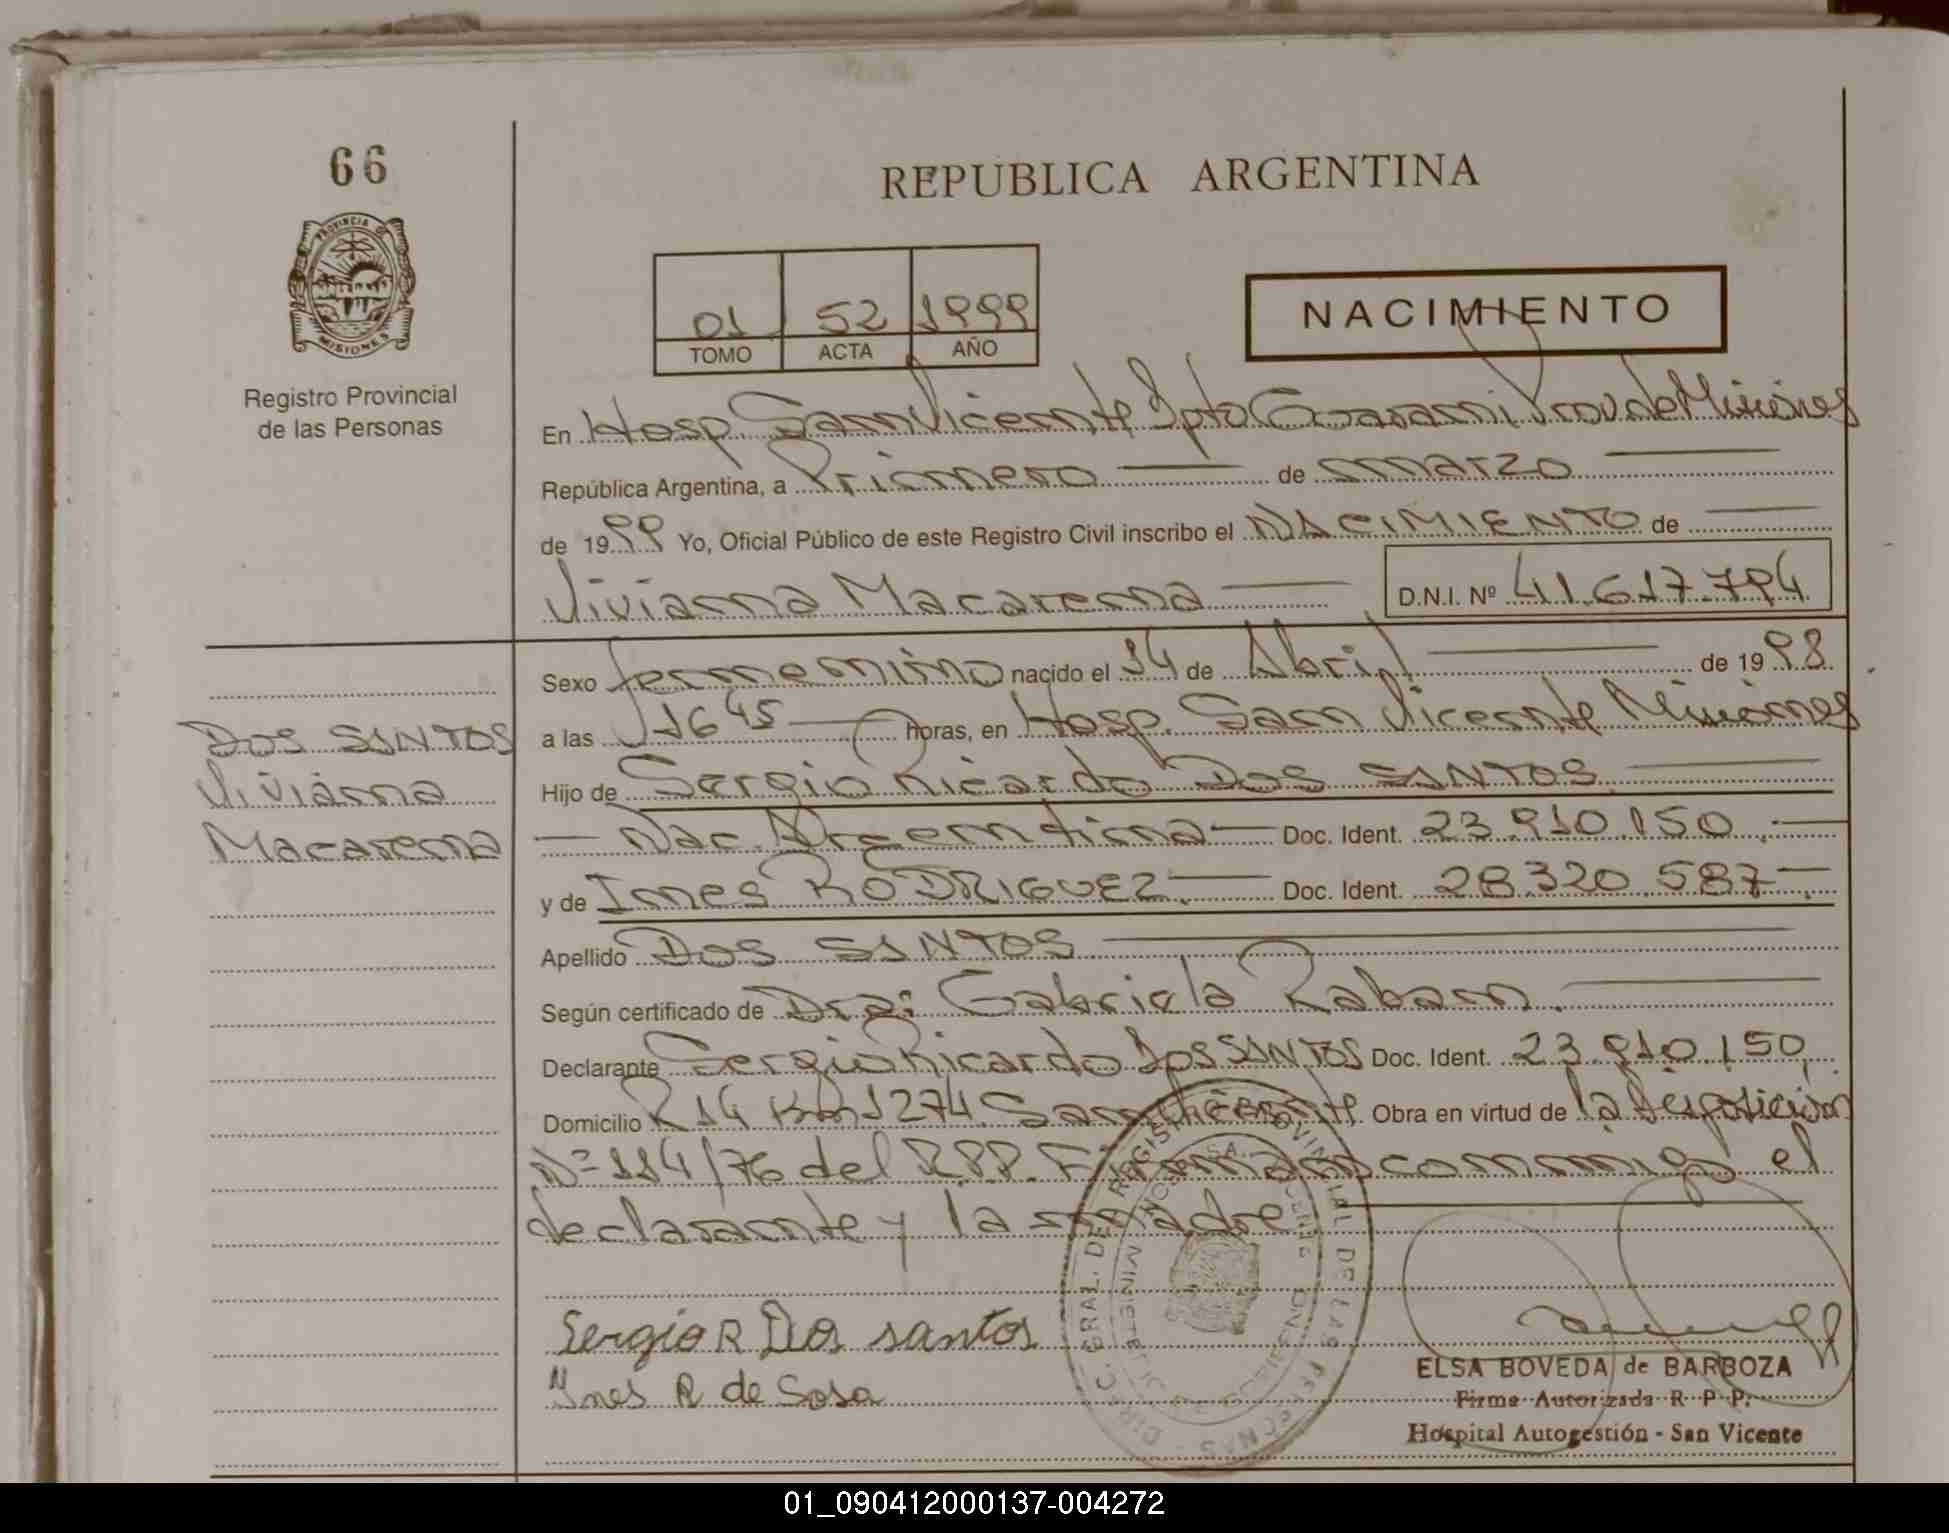 66
PROVINCIA DE
MISIONES
Registro Provincial
de las Personas
REPUBLICA ARGENTINA
01 52 1999
TOMO ACTA AÑO
NACIMIENTO
En Hosp San Vicente Dpto Guarani Prov de Misiones
República Argentina, a Primero de marzo
de 1999 Yo, Oficial Público de este Registro Civil inscribo el NACIMIENTO de
Viviana Macarena D.N.I. Nº 41.617.794
Sexo femenino nacido el 14 de Abril de 1998.
a las 16 45 horas, en Hosp. San Vicente Misiones
Hijo de Sergio Ricardo Dos SANTOS
Nac. Argentina Doc. Ident. 23.910.150
y de Ines RODRIGUEZ. Doc. Ident. 28320.587
Apellido Dos SANTOS
Según certificado de Dra: Gabriela Raban.
Declarante Sergio Ricardo Dos SANTOS Doc. Ident. 23.910.150
Domicilio R 14 Km 1274 San Vicente. Obra en virtud de la disposicion
Nº 114/76 del R.P.P. Firman conmigo el
declarante y la madre
DOS SANTOS
Viviana
Macarena
Sergio R Dos santos
Ines R de Sosa
ELSA BOVEDA de BARBOZA
Firma Autorizada R P P.
Hospital Autogestión - San Vicente
01_090412000137-004272